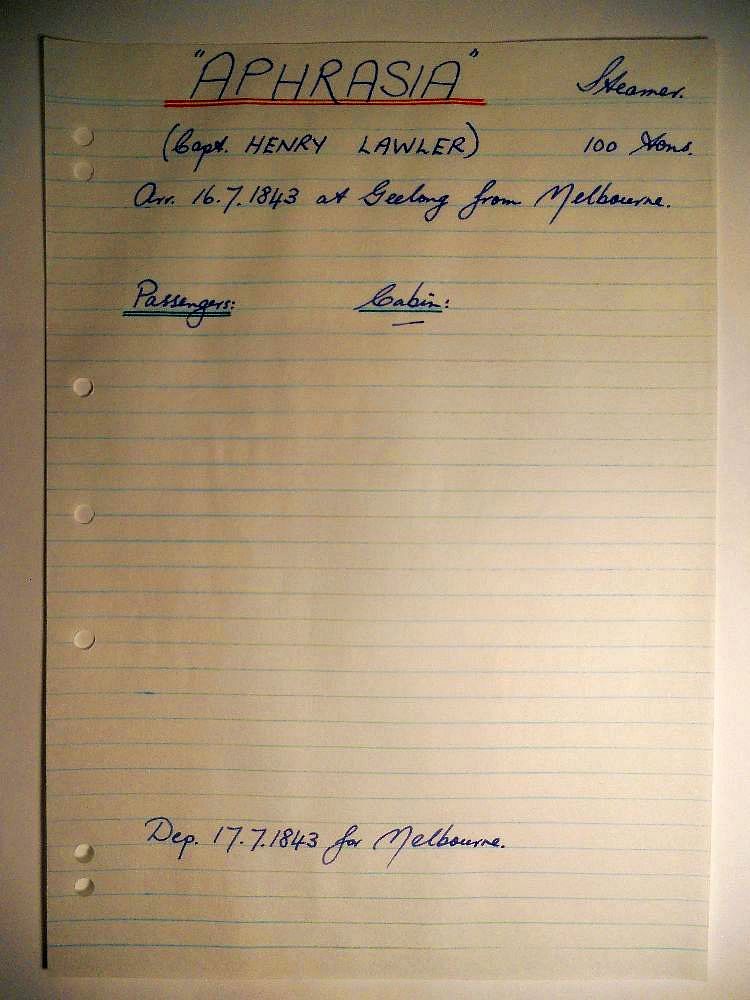 "APHRASIA" Steamer.
(Capt. HENRY LAWLER) 100 Tons.
Arr. 16.7.1843 at Geelong from Melbourne.
Passengers: Cabin:
Dep. 17.7.1843 for Melbourne.